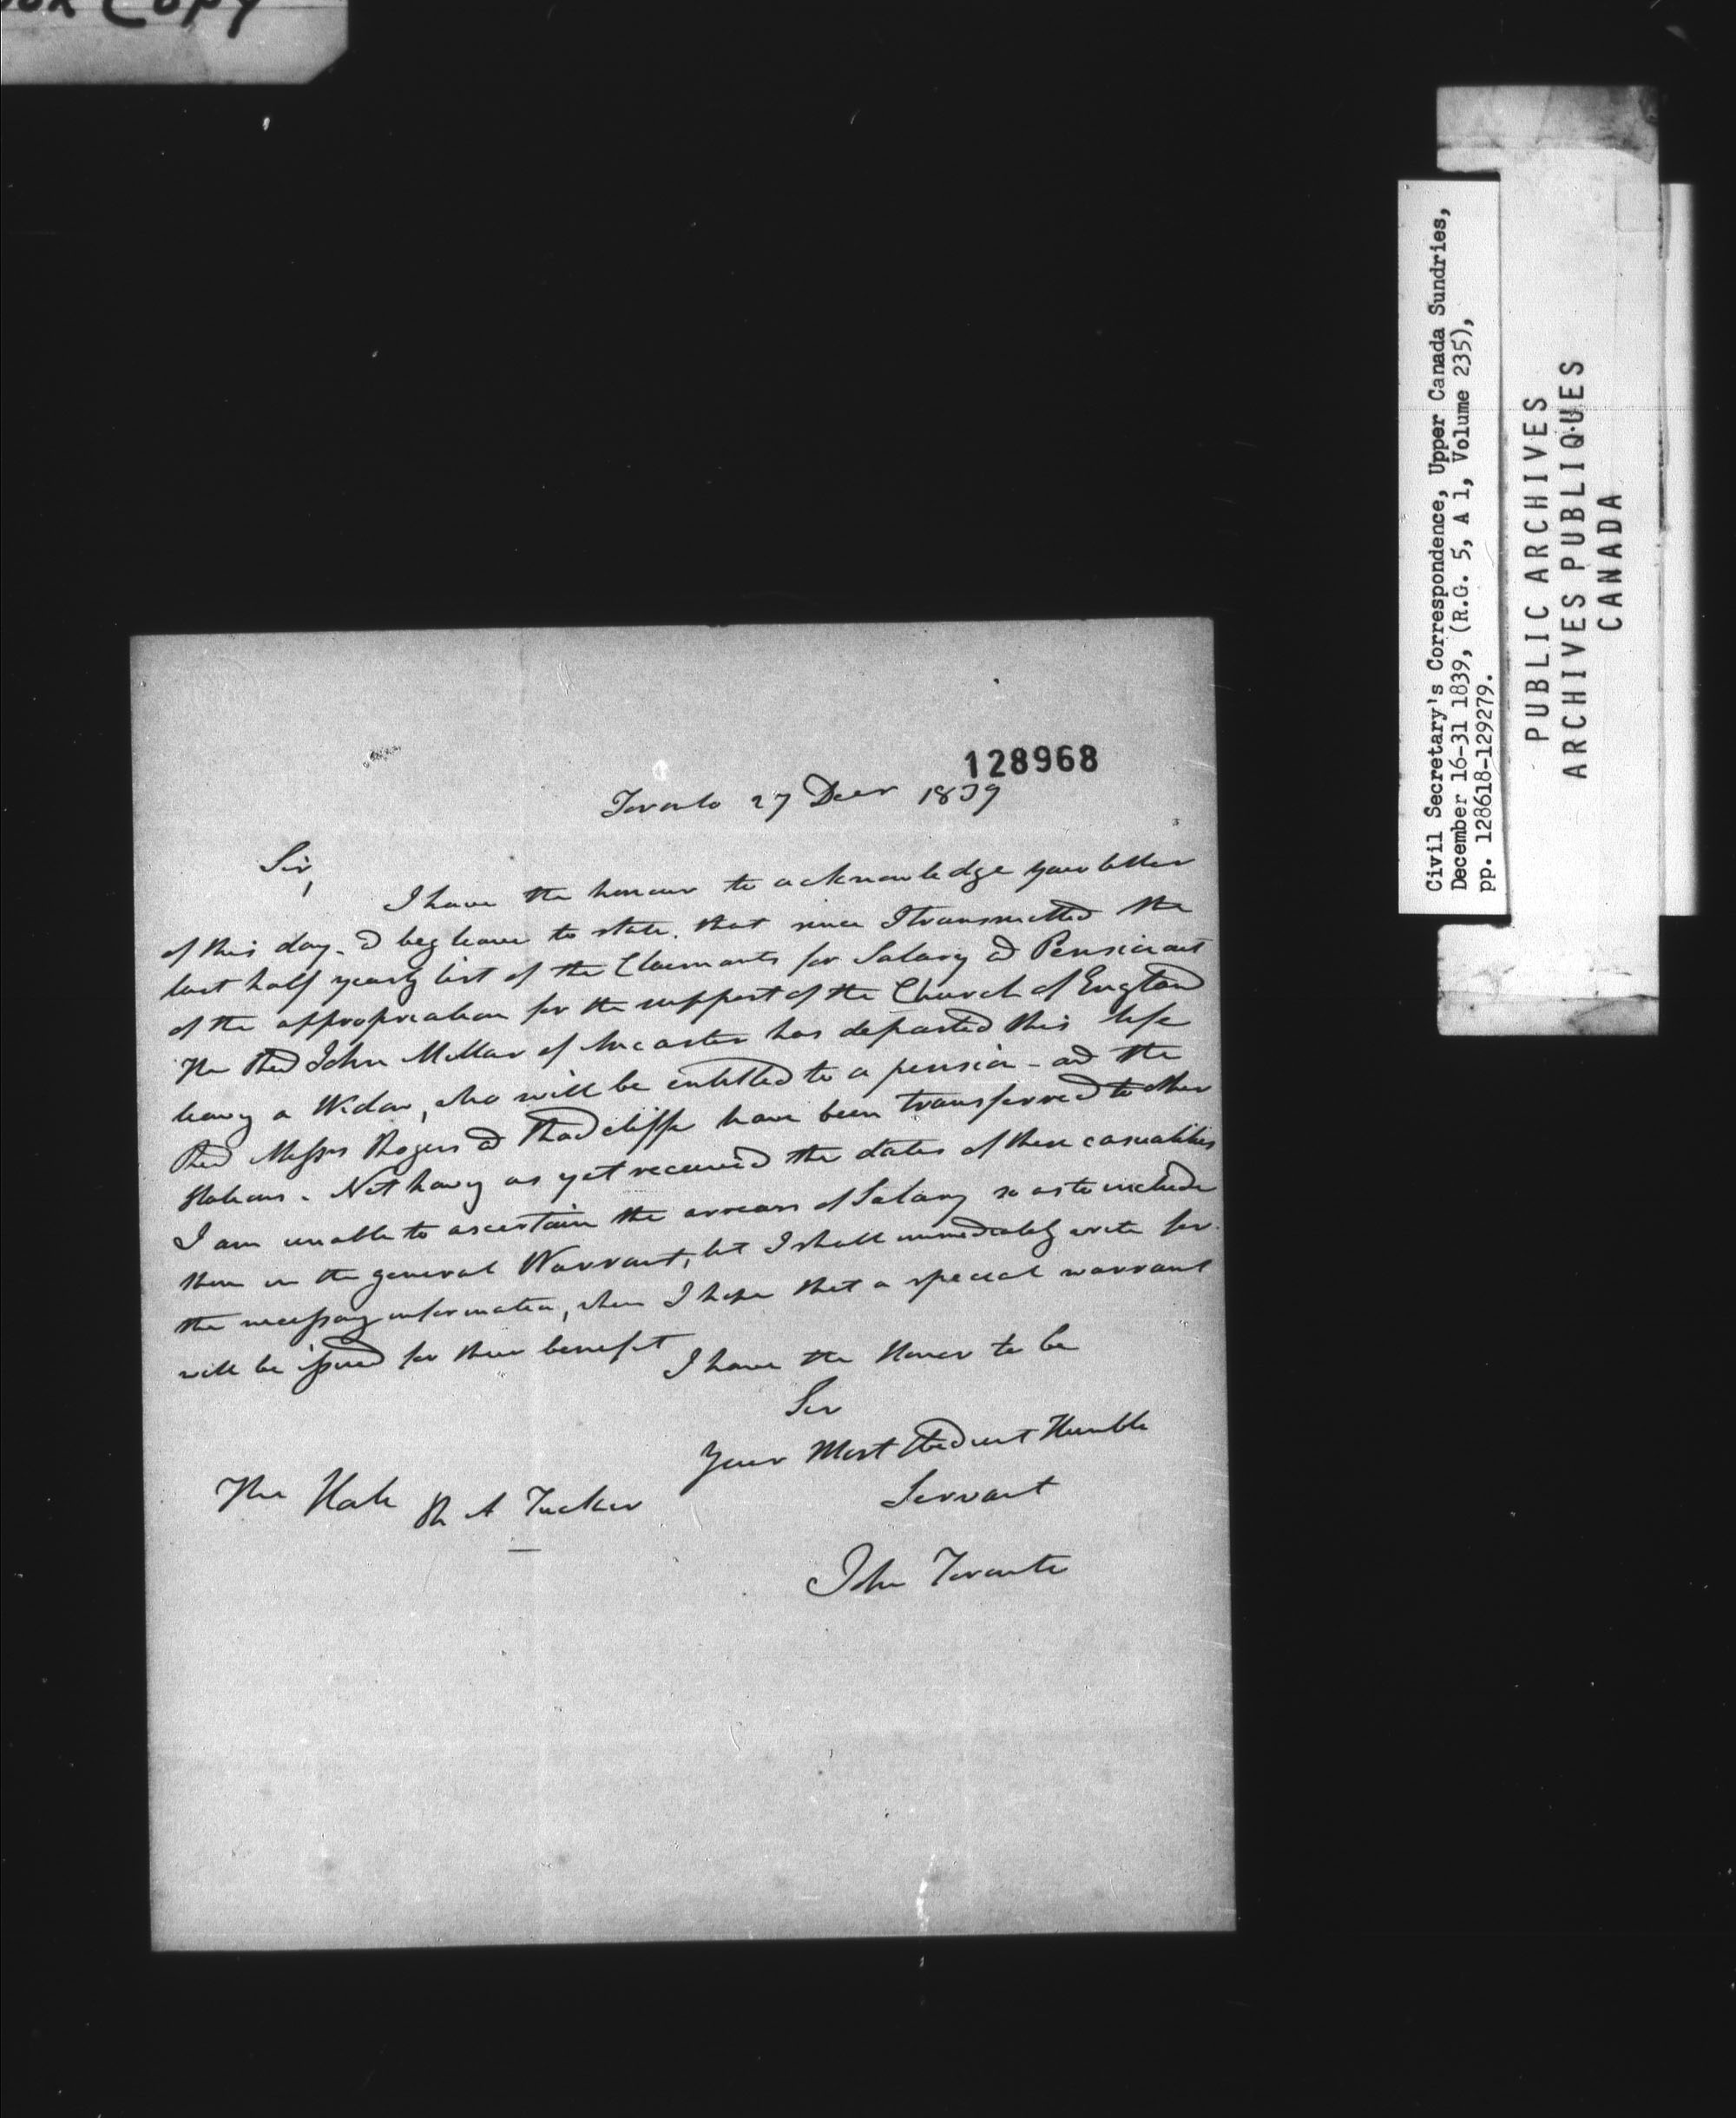 Copy
128968
Toronto 27 Decr 1839
Sir,
I have the honour to acknowledge your letter
of this day. & beg leave to state. that since I transmitted the
last half yearly list of the Claimants for Salary & Pension out
of the appropriation for the support of the Church of England
The Revd John Millar of Ancaster has departed this life
leavg a Widow, who will be entitled to a pension - and the
Revd Messrs Rogers & Radcliffe have been transferred to other
Stations. Not havg as yet received the dates of these casualities
I am unable to ascertain the arrears of Salary so as to include
them in the general Warrant, but I shall immediately write for
the necessary information, when I hope that a special warrant
will be issued for their benefit
I have the Honor to be
Sir
Your Most Obedient Humble
Servant
John Toronto
The Hble R A Tucker
Civil Secretary's Correspondence, Upper Canada Sundries,
December 16-31 1839, (R.G. 5, A 1, Volume 235),
pp. 128618-129279.
PUBLIC ARCHIVES
ARCHIVES PUBLIQUES
CANADA